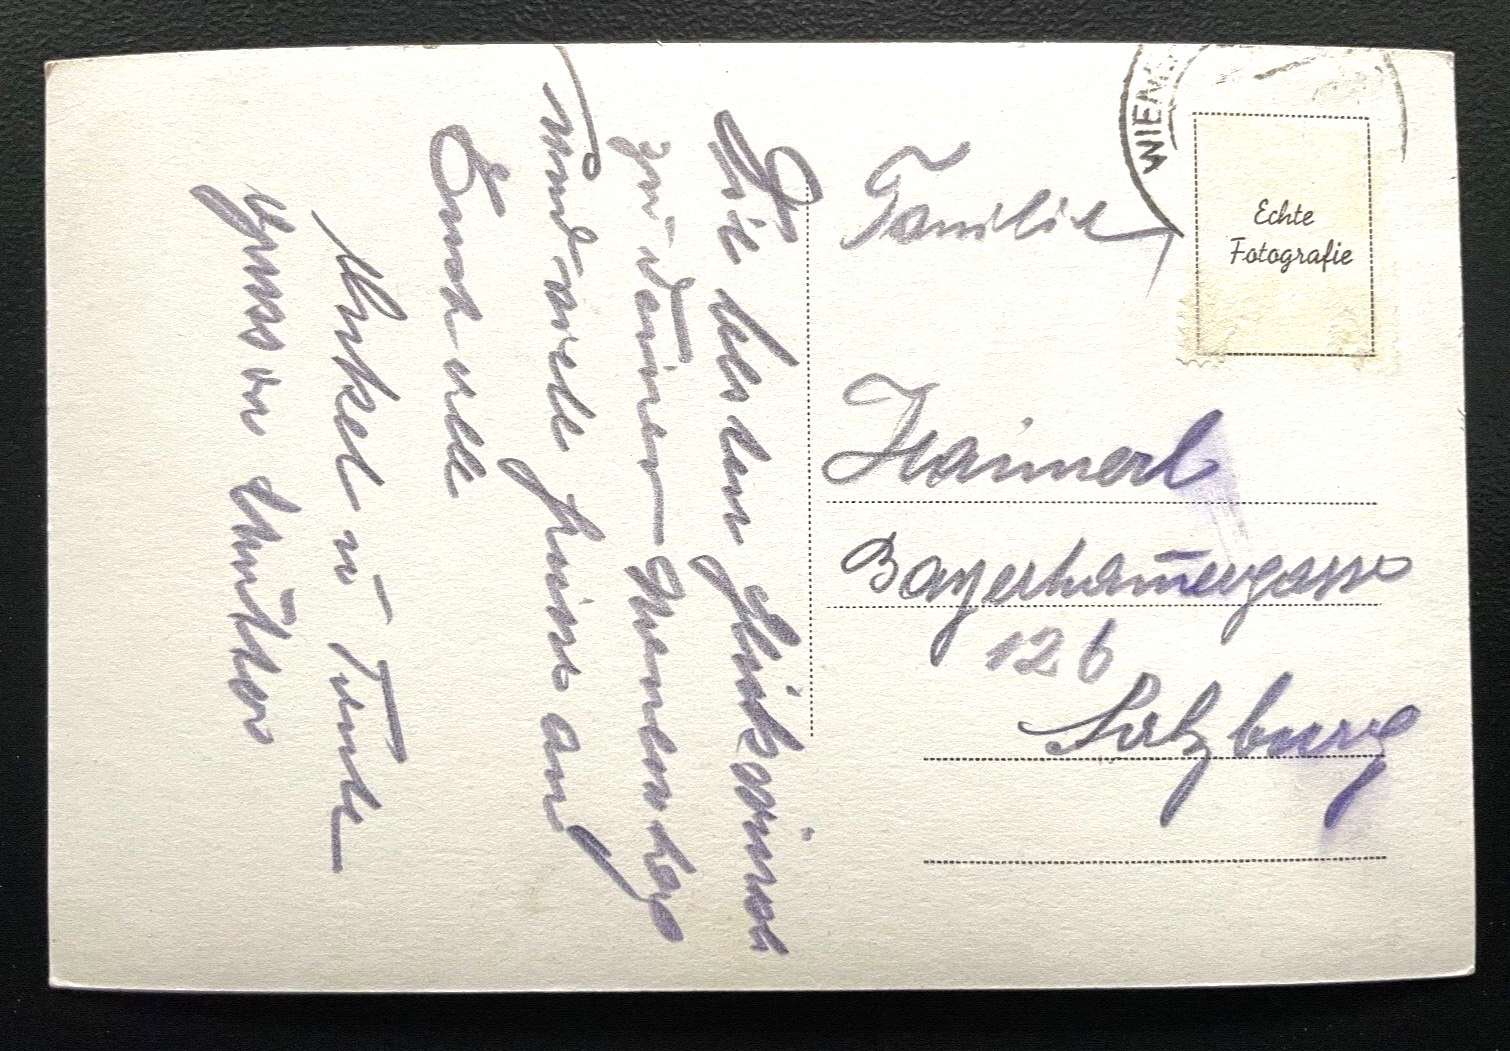 WIEN
Echte
Fotografie
Familie
Haimerl
Bayerham̄ergasse
12 b
Salzburg
Die besten Glückwünsche
zu Deinem Namenstag
und viele Grüsse an
Euch alle
Onkel u Tante
Gruss an